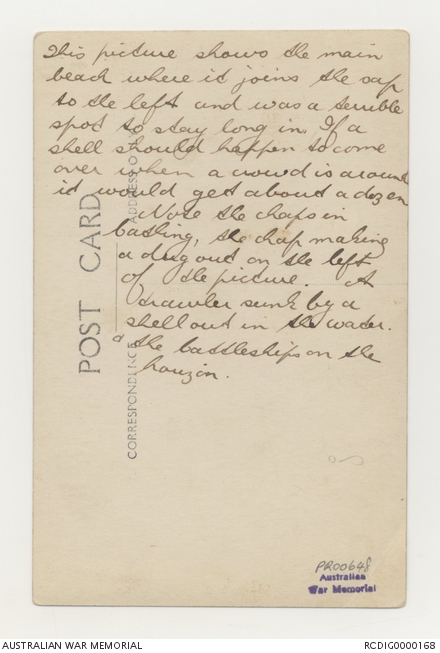 This picture shows the main
beach where it joins the sap
to the left and was a terrible
spot to stay long in. If a
shell should happen to come
over when a crowd is around
it would get about a dozen
Note the chaps in
bathing, the chap making
a dugout on the left
of the picture. A
trawler sunk by a
shell out in the water.
& the battleships on the
horizon.
POST CARD
CORRESPONDENCE
ADDRESS ONLY
PR00648
Australian
War Memorial
AUSTRALIAN WAR MEMORIAL
RCDIG0000168